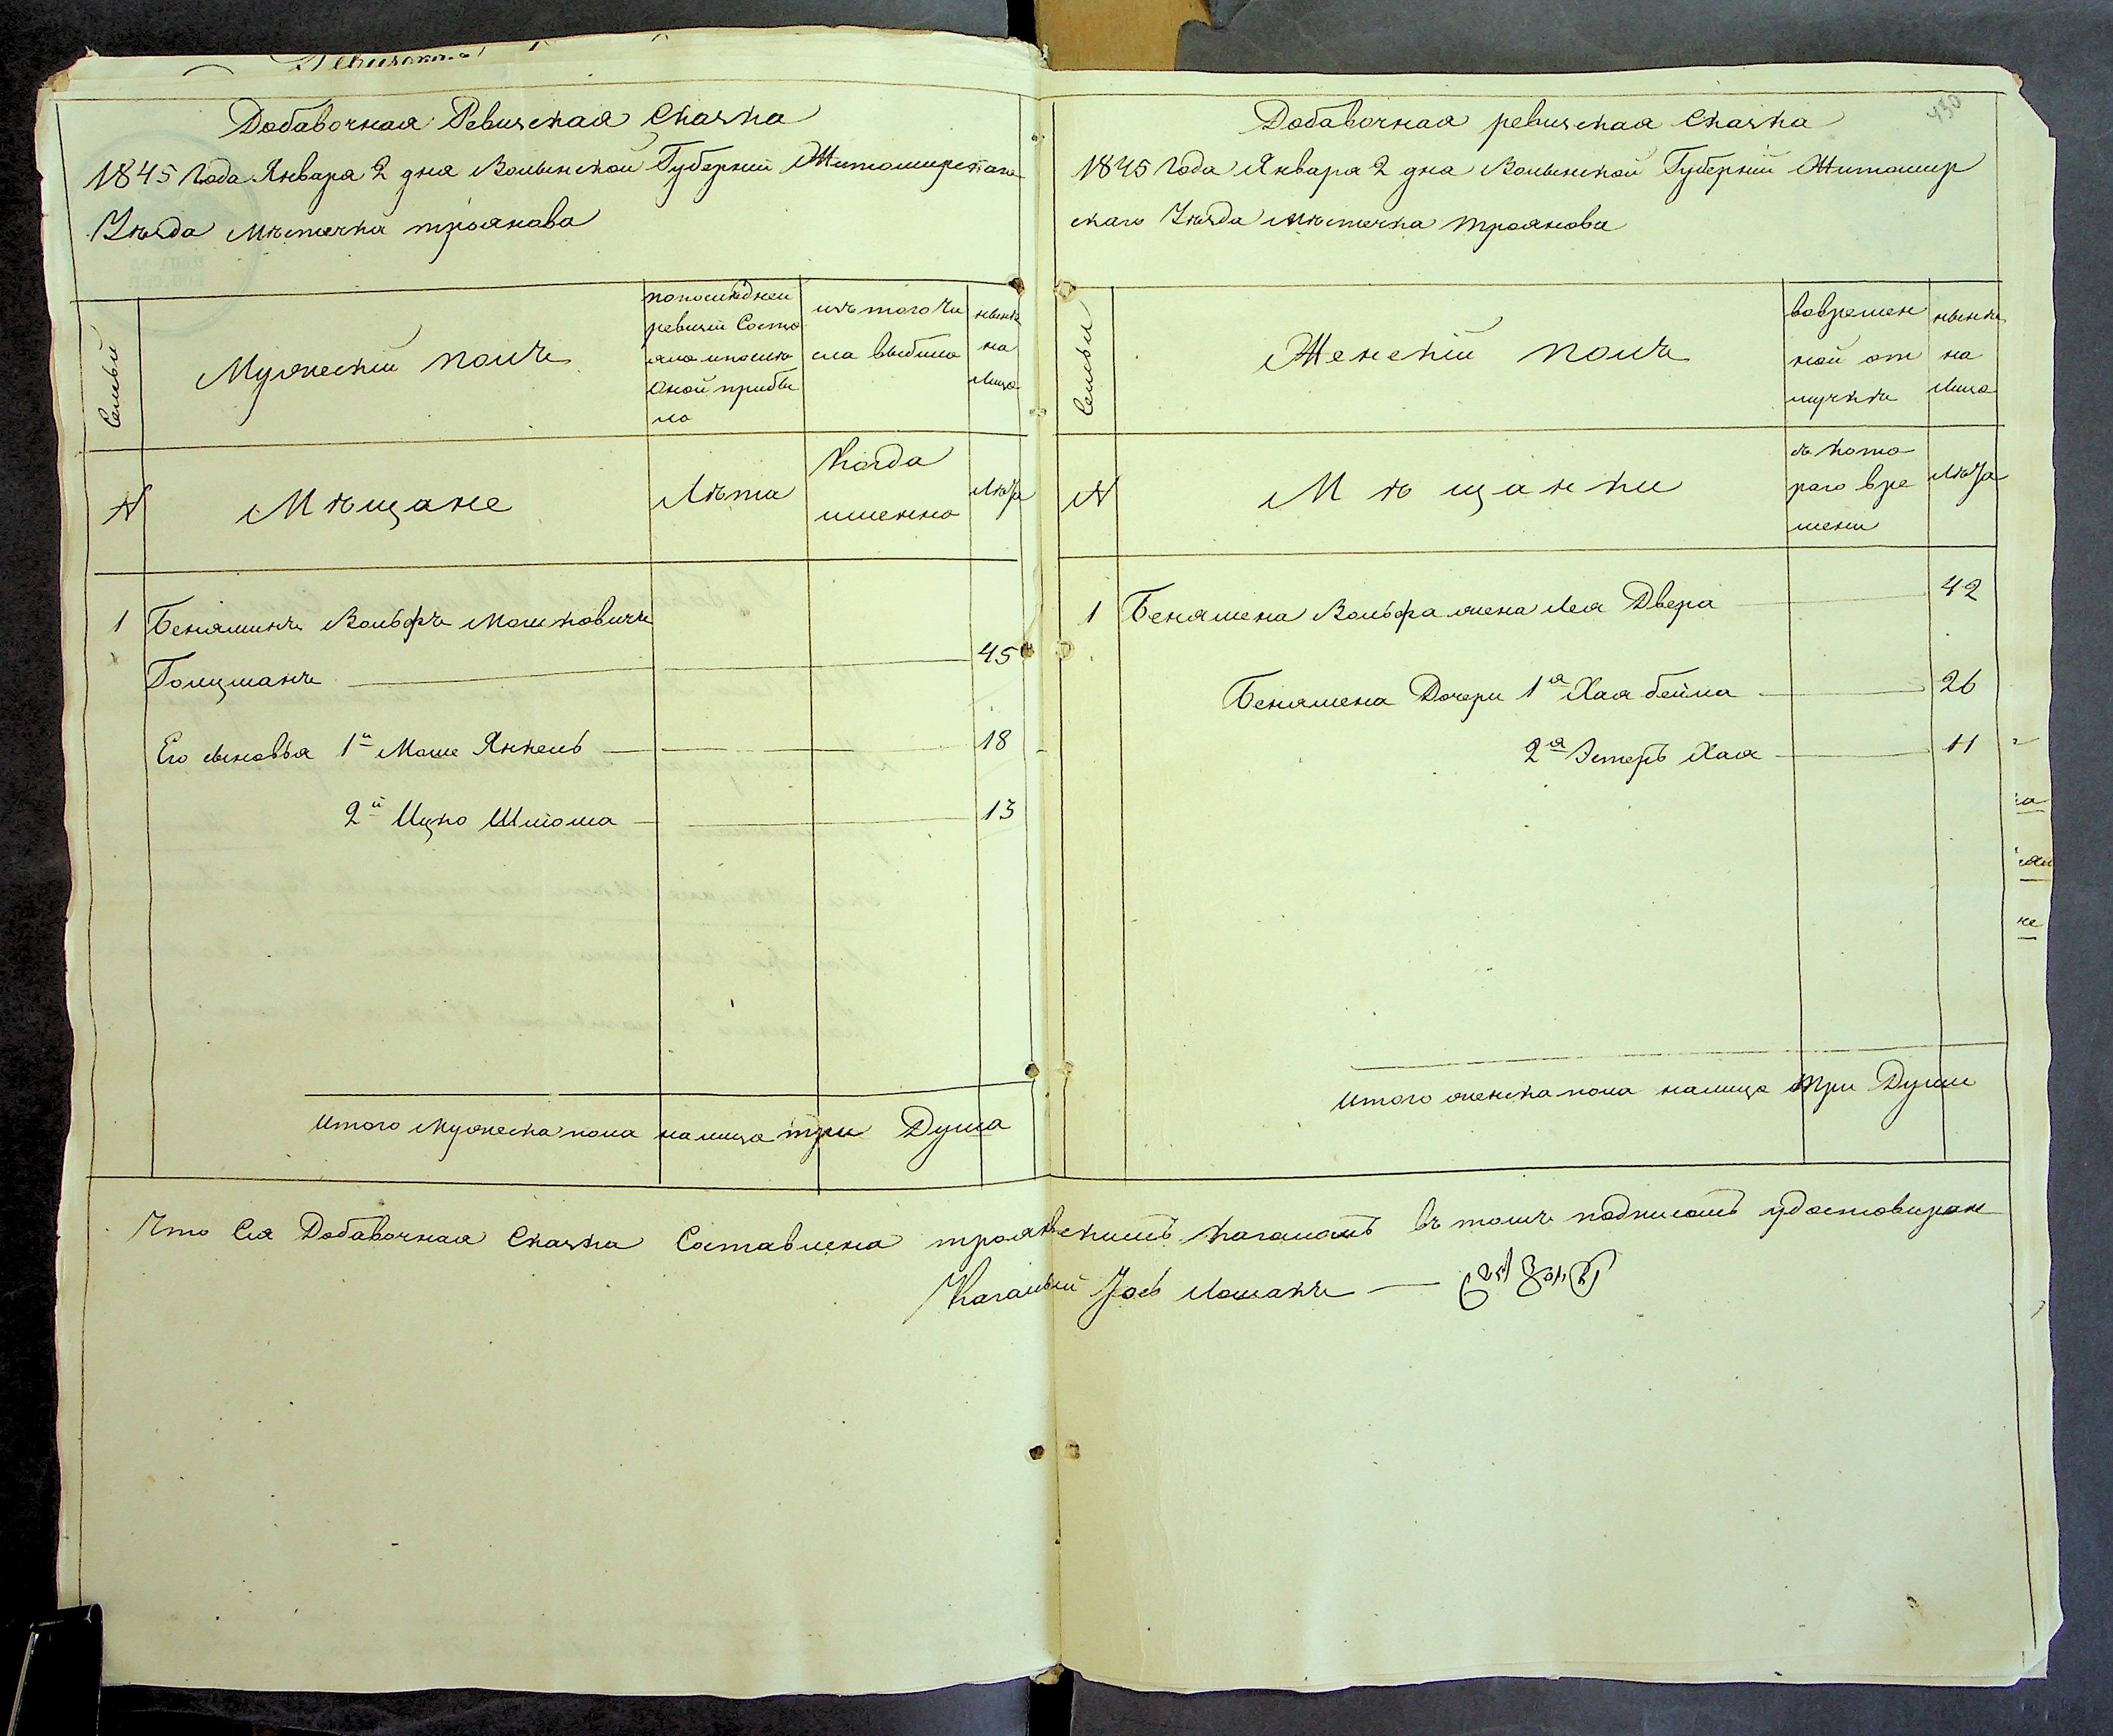 Добавочная Ревизская Сказка
1845 Года Января 2 дня Волынской Губернии Житомирскаго
Уѣзда Мѣстечка троянова
Семьи
Мужескiй полъ
попоследней
ревизiи Состо
яло и после
оной прибы
ло
изъ того чи
сла выбыло
нынѣ
на
лицо
№
Мѣщане
Лѣта
Когда
именно
Лѣта
1 Беняминъ Вольфъ Мошковичъ
Голцманъ 45
Его сыновья 1й Моше Янкель 18
2й Ицко Шлёма 13
Итого мужеска пола налицо три Душа
Добавочная ревизская Сказка
430
1845 Года Января 2 дня Волынской Губернiи Житомир
скаго Уѣзда Мѣстечка Троянова
Семьи
Женскiй полъ
вовремен
ной от
лучкѣ
нынѣ
на
лицо
№
Мѣщанки
съ кото
раго вре
мени
Лѣта
1 Бенямена Вольфа жена Лея Двера 42
Бенямена Дочери 1я Хая бейла 26
2я Эстеръ Хая 11
Итого женска пола налицо три Души
Что Сiя Добавочная Сказка Составлена трояновскимъ кагаломъ въ томъ подписомъ удостовирян
Кагалный Iось Лошакъ —